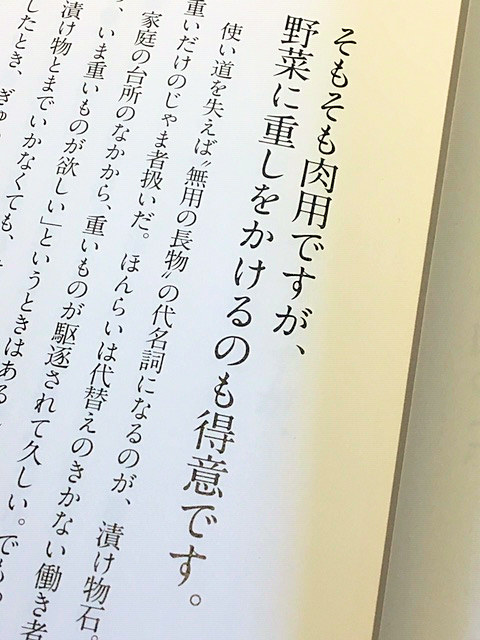 そもそも肉用ですが、
野菜に重しをかけるのも得意です。
使い道を失えば〝無用の長物〟の代名詞になるのが、漬け物石。
重いだけのじゃま者扱いだ。ほんらいは代替えのきかない働き者
家庭の台所のなかから、重いものが駆逐されて久しい。でも
、いま重いものが欲しい」というときはある
漬け物とまでいかなくても、
したとき、ぎゅ